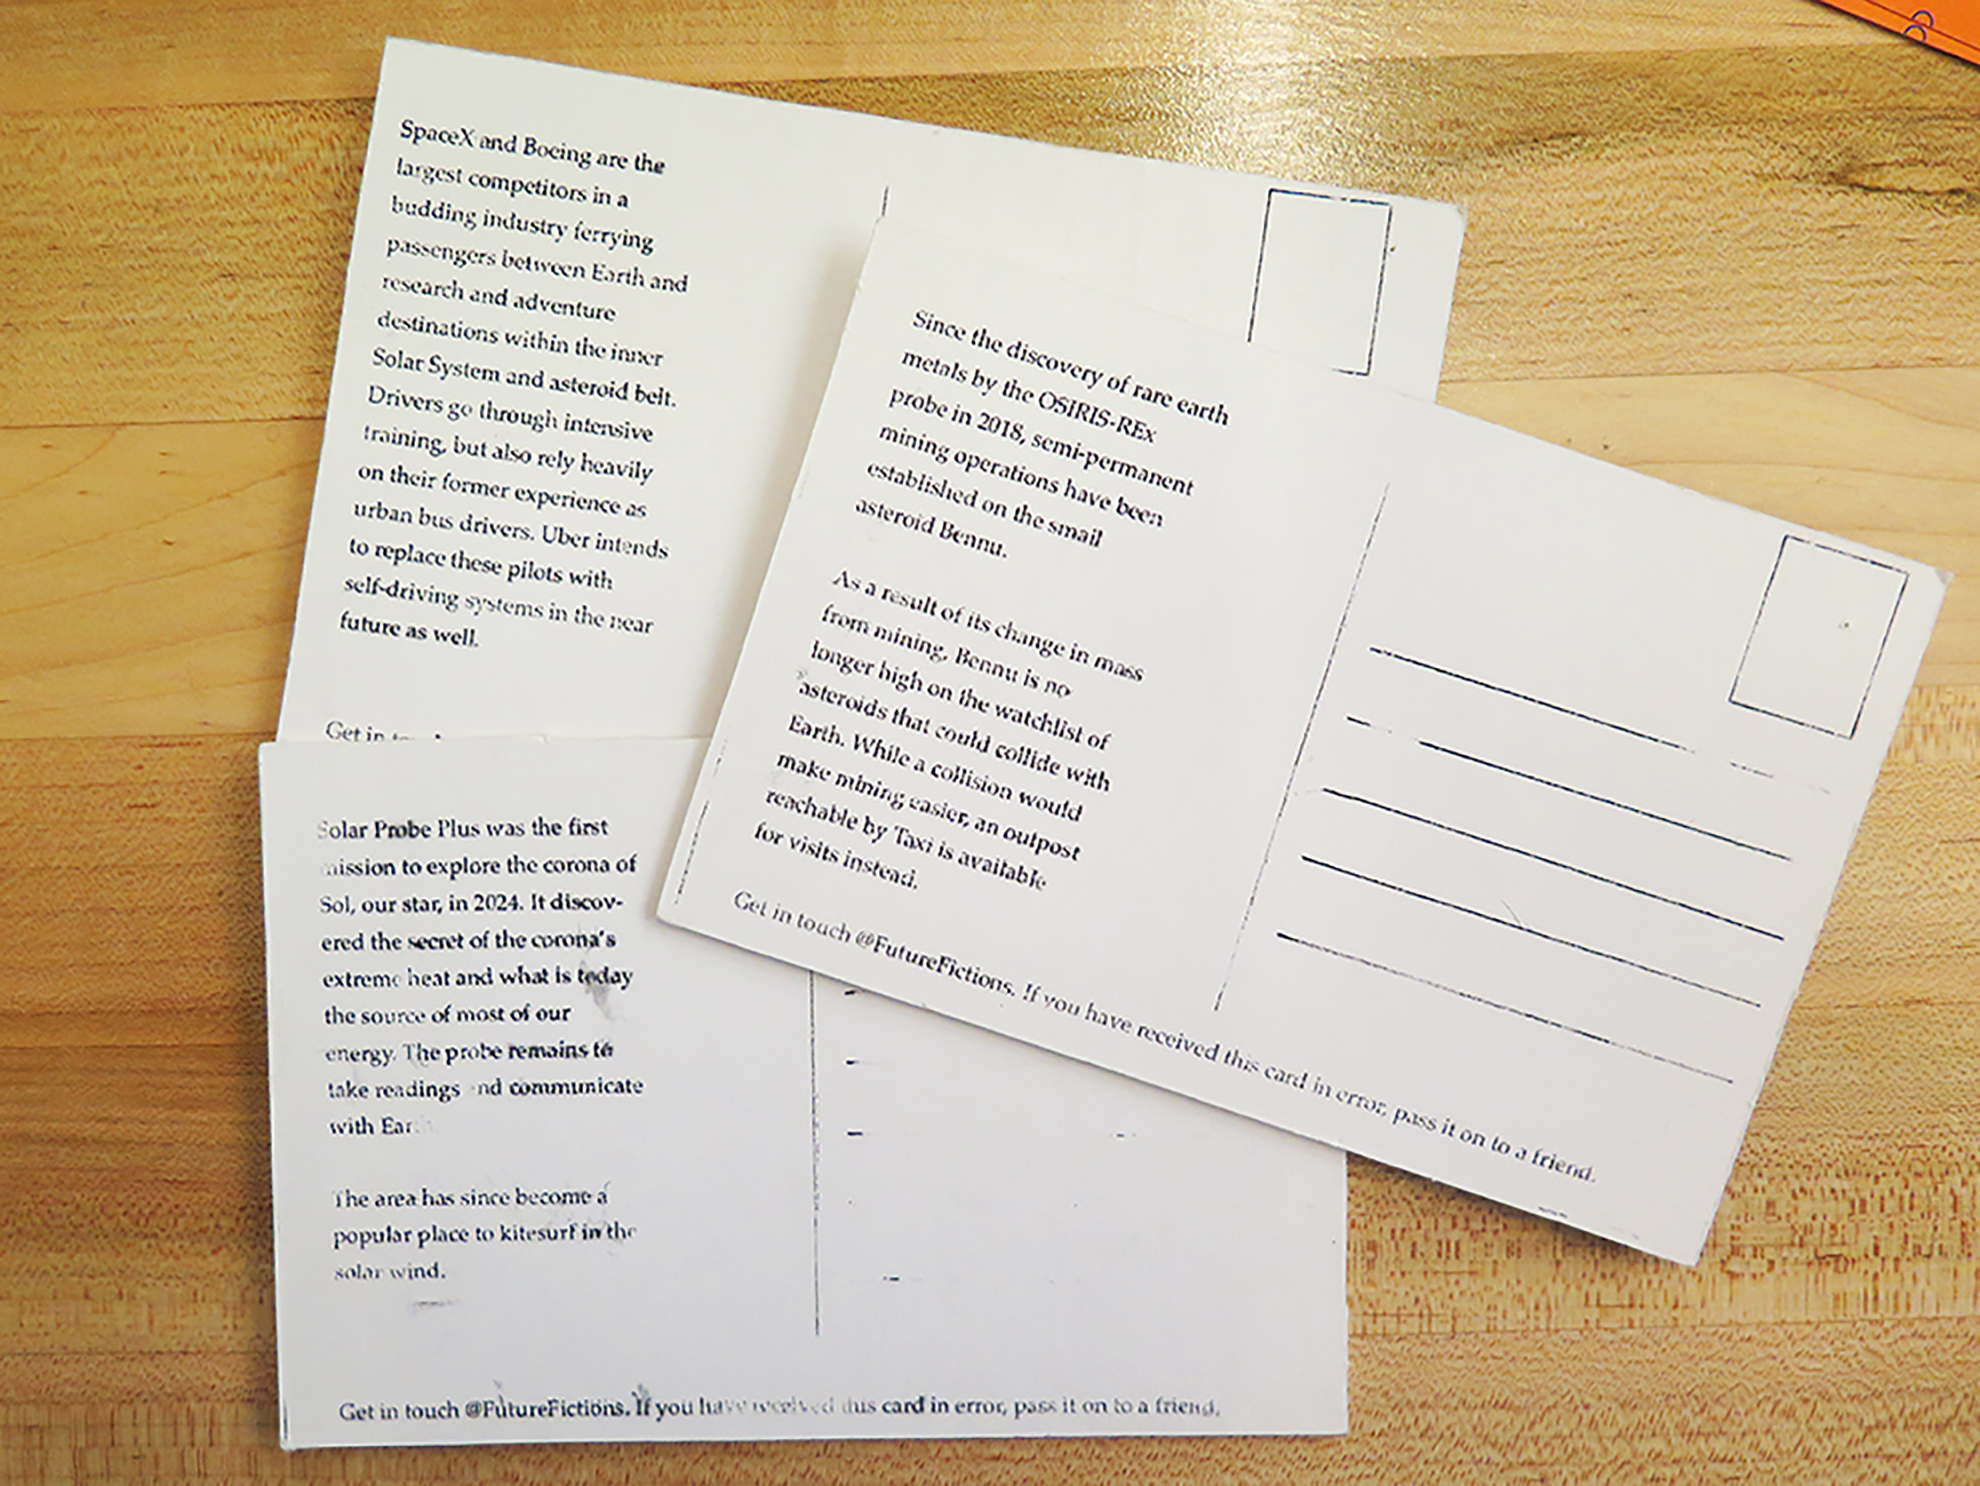 SpaceX and Boeing are the
largest competitors in a
budding industry ferrying
passengers between Earth and
research and adventure
destinations within the inner
Solar System and asteroid belt.
Drivers go through intensive
training, but also rely heavily
on their former experience as
urban bus drivers. Uber intends
to replace these pilots with
self-driving systems in the near
future as well.
Get in
Since the discovery of rare earth
metals by the OSIRIS-REx
probe in 2018, semi-permanent
mining operations have been
established on the small
asteroid Bennu.
As a result of its change in mass
from mining, Bennu is no
longer high on the watchlist of
asteroids that could collide with
Earth. While a collision would
make mining easier, an outpost
reachable by Taxi is available
for visits instead.
Get in touch @FutureFictions. If you have received this card in error, pass it on to a friend.
Solar Probe Plus was the first
mission to explore the corona of
Sol, our star, in 2024. It discov-
ered the secret of the corona's
extreme heat and what is today
the source of most of our
energy. The probe remains to
take readings and communicate
with Ear
The area has since become a
popular place to kitesurf in the
solar wind.
Get in touch @FutureFictions. If you have received this card in error, pass it on to a friend.